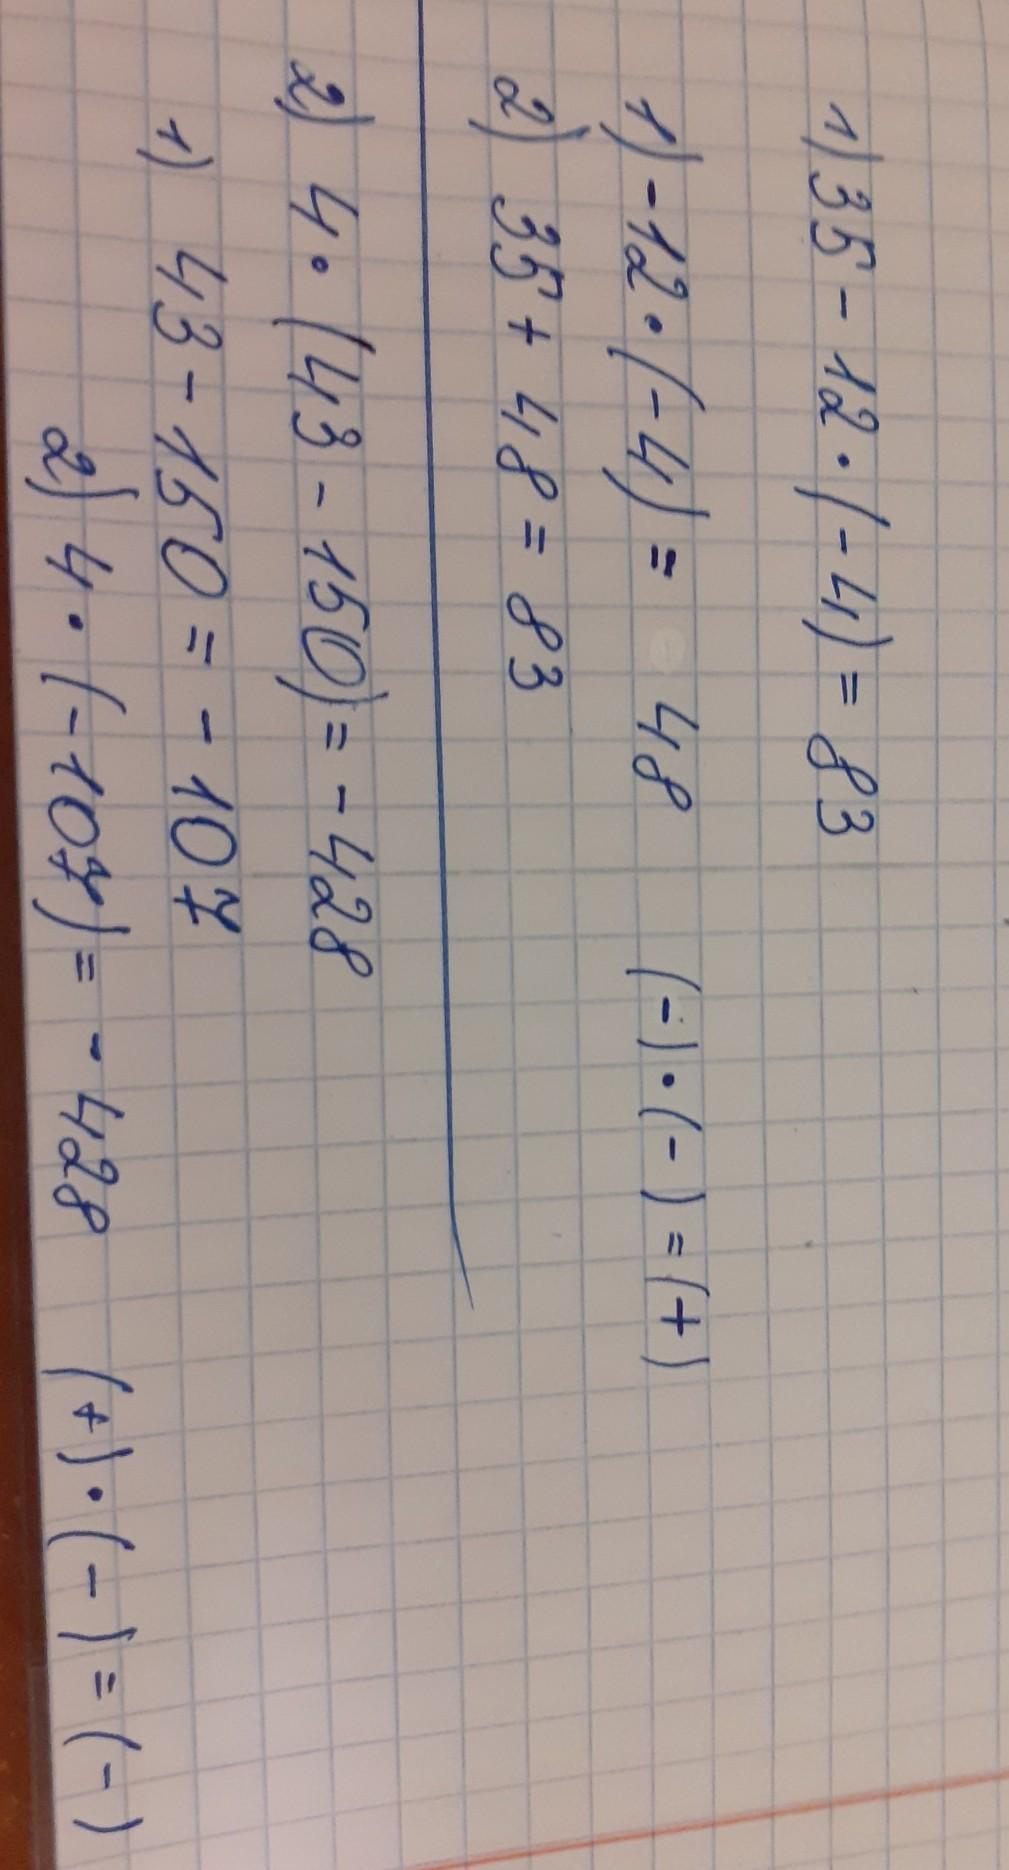 1) 35 - 12 · (- 4) = 83
1) - 12 · (- 4) = 48 (-) · (-) = (+)
2) 35 + 48 = 83
2) 4 · (43 - 150) = - 428
1) 43 - 150 = - 107
2) 4 · (- 107) = - 428 (+) · (-) = (-)